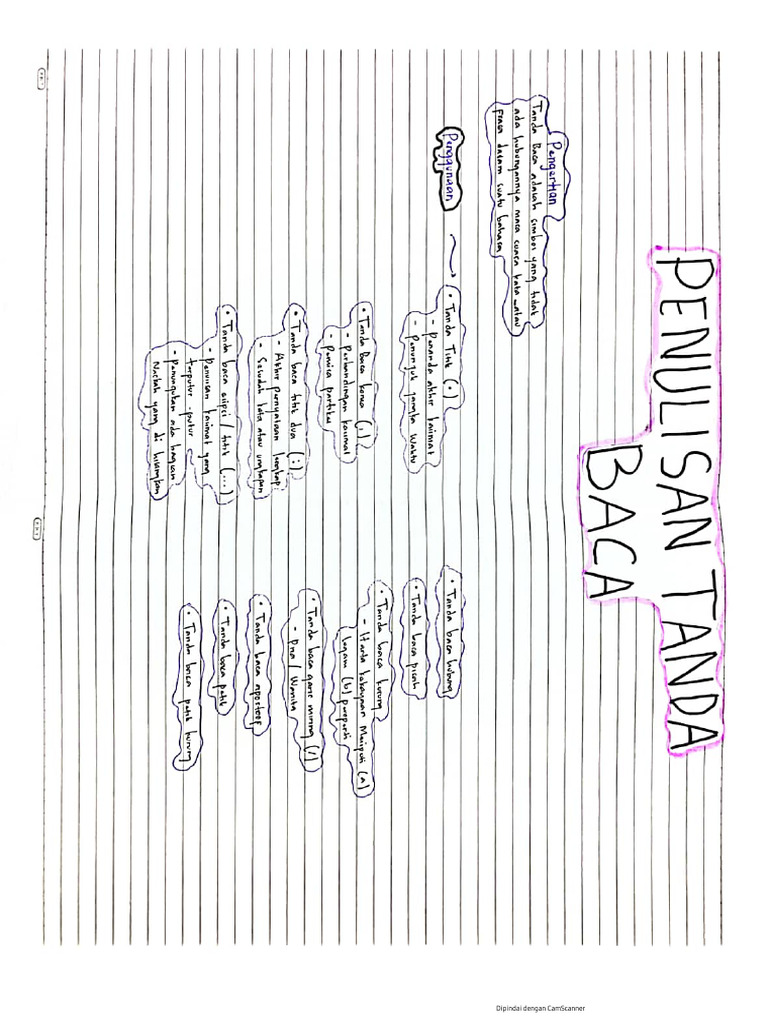 PENULISAN TANDA
BACA
Pengertian
Tanda Baca adalah simbol yang tidak
ada hubungannya maca suara kata atau
frasa dalam suatu bahasa
Penggunaan
• Tanda Titik (.)
- Penanda akhir kalimat
- Penunjuk jangka Waktu
• Tanda Baca koma (,)
- perbandingan kalimat
- Pemisa partikel
• Tanda baca titik dua (:)
- Akhir Pernyataan lengkap
- Sesudah kata atau ungkapan
• Tanda baca elipsi / titik (...)
- Penulisan kalimat yang
terputus-putus
- penunjukan ada bagian
Naskah yang di hilangkan
• Tanda baca hubung
• Tanda baca pisah
• Tanda baca kurung
- Harta kekayaan Meliputi (a)
logam (b) properti
• Tanda baca garis miring (/)
- Pria / Wanita
• Tanda baca apostrop
• Tanda baca petik
• Tanda baca petik kurung
Dipindai dengan CamScanner